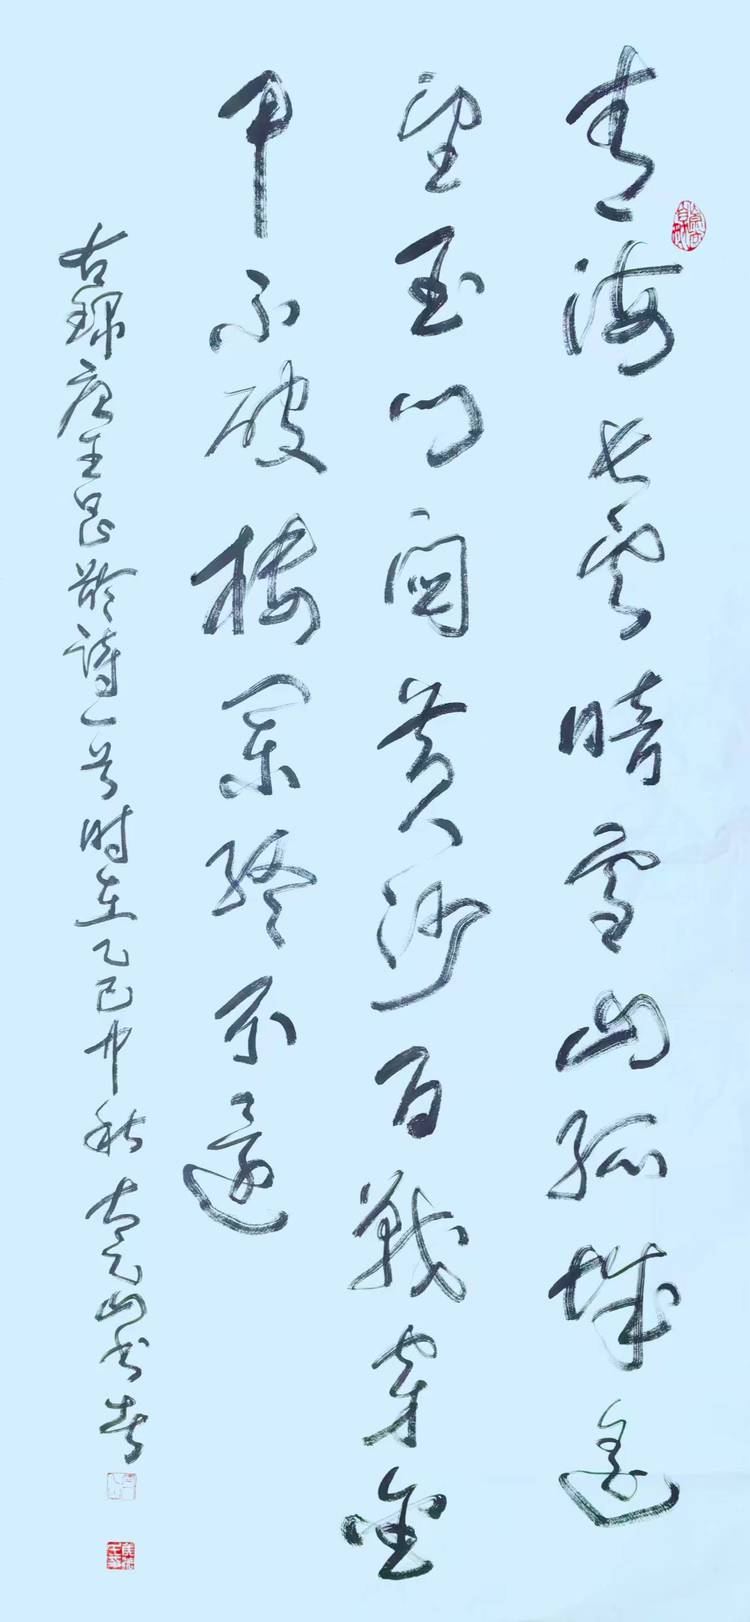 青海长云暗雪山孤城遥
望玉门关黄沙百战穿金
甲不破楼兰终不还
右录唐王昌龄诗一首时在乙巳中秋 山书